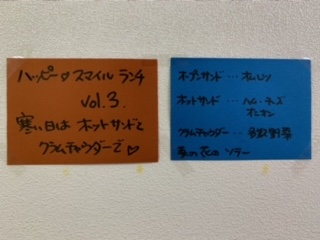 ハッピー♡スマイル ランチ
vol.3.
寒い日は ホットサンドと
クラムチャウダーで♡
オープンサンド・・・オムレツ
ホットサンド・・・ハム・チーズ
オニオン
クラムチャウダー・・・
ソテー